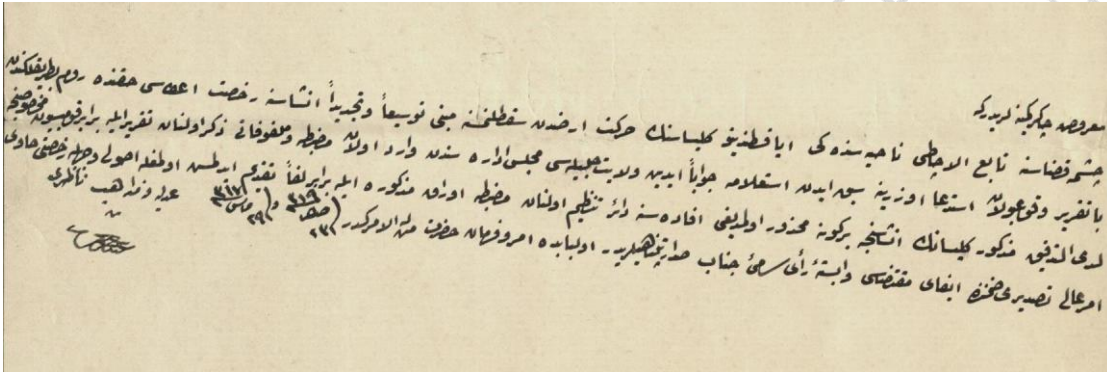 معروض چاكر كمينه‌لريدر كه
چشمه قضاسنه تابع الاچاطی ناحیه سنده کی ایا قسطندینو کلیساسنك حرکت ارضدن سقطلنمسنه مبنی توسیعاً وتجدیداً انشاسنه رخصت اعطاسی حقنده روم بطریقلكندن
با تقریر وقوعبولان استدعا اوزرینه سبق ایدن استعلامه جواباً ایدین ولایت جلیله‌سی مجلس اداره سندن وارد اولان مضبطه وملفوفاتی ذکر اولنان تقریر ایله برابر قومیسیون مخصوصنجه
لدی التدقیق مذکور کلیسانك انشاسنجه برکونه محذور اولمدیغی افاده سنه دائر تنظیم اولنان مضبطه اوراق مذکوره ایله برابر لفاً تقدیم ایدلمش اولمغله اصولی وجهله رخصتی حاوی
امر عالی تصدیری ضمننده ایفای مقتضاسی وابستهٔ رأی سامئ جناب صدارتپناهیلریدر اولبابده امر وفرمان حضرت من له الامرکدر
عدلیه ومذاهب ناظری